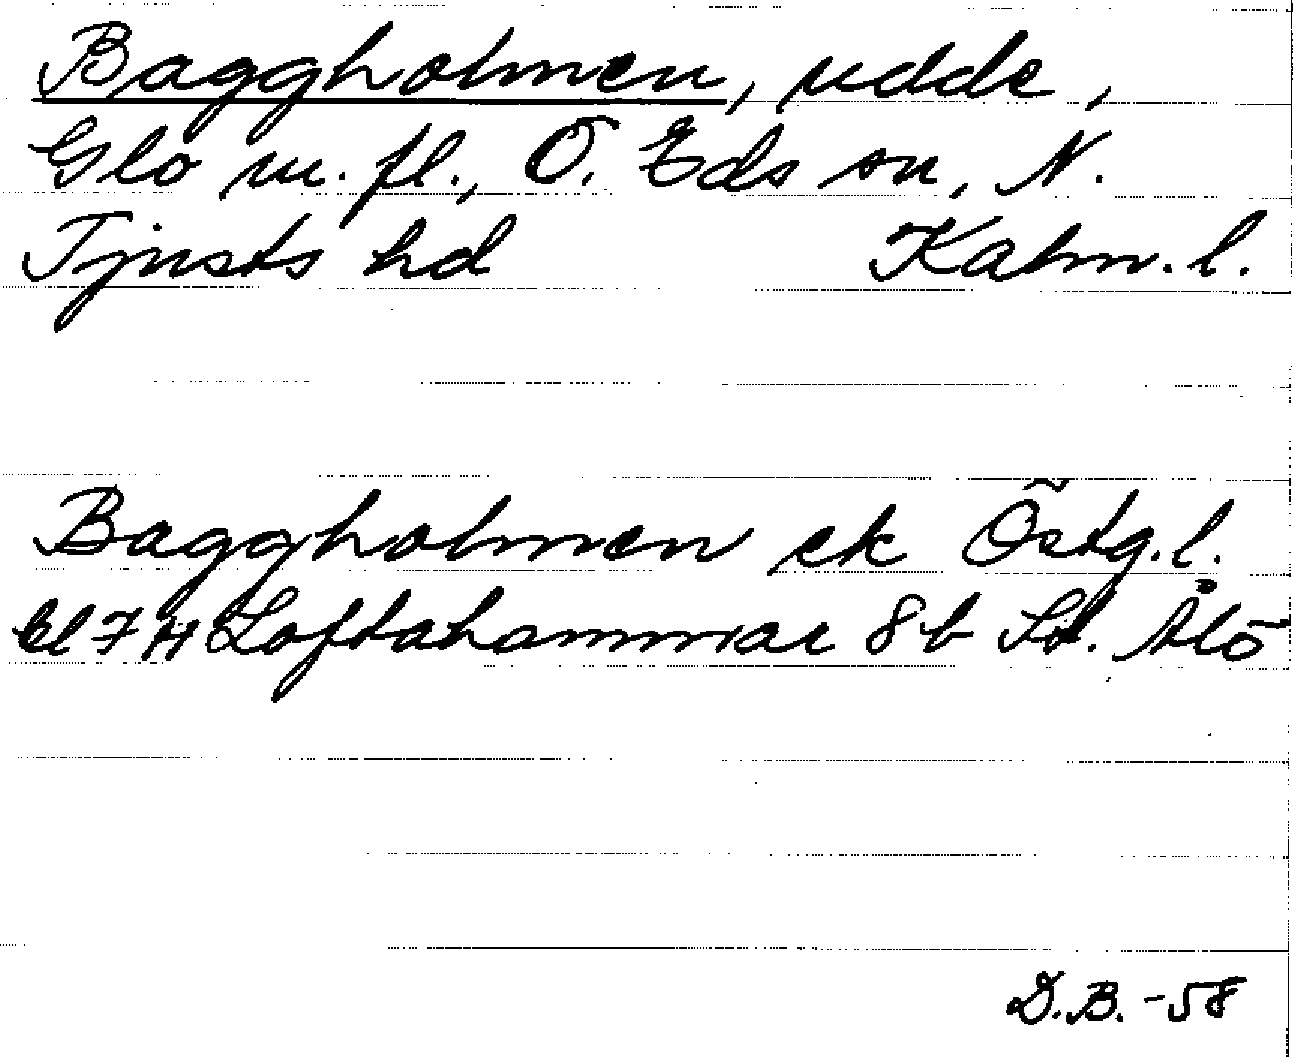 Baggholmen, udde,
Glo m. fl., Ö. Eds sn, N.
Tjusts hd Kalm. l.
Baggholmen ek Östg. l.
bl 7 H Loftahammar 8b St. Ålö
D.B. -58